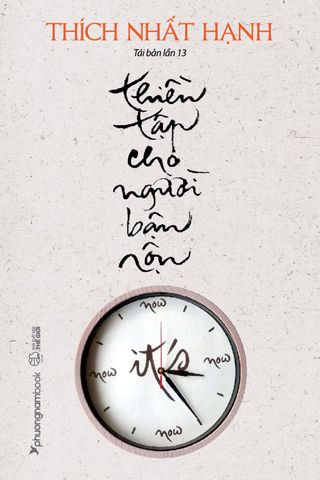 THÍCH NHẤT HẠNH
Tái bản lần 13
thiền
tập
cho
người
bận
rộn
now
now
it's
now
now
phuongnambook
THẾ GIỚI